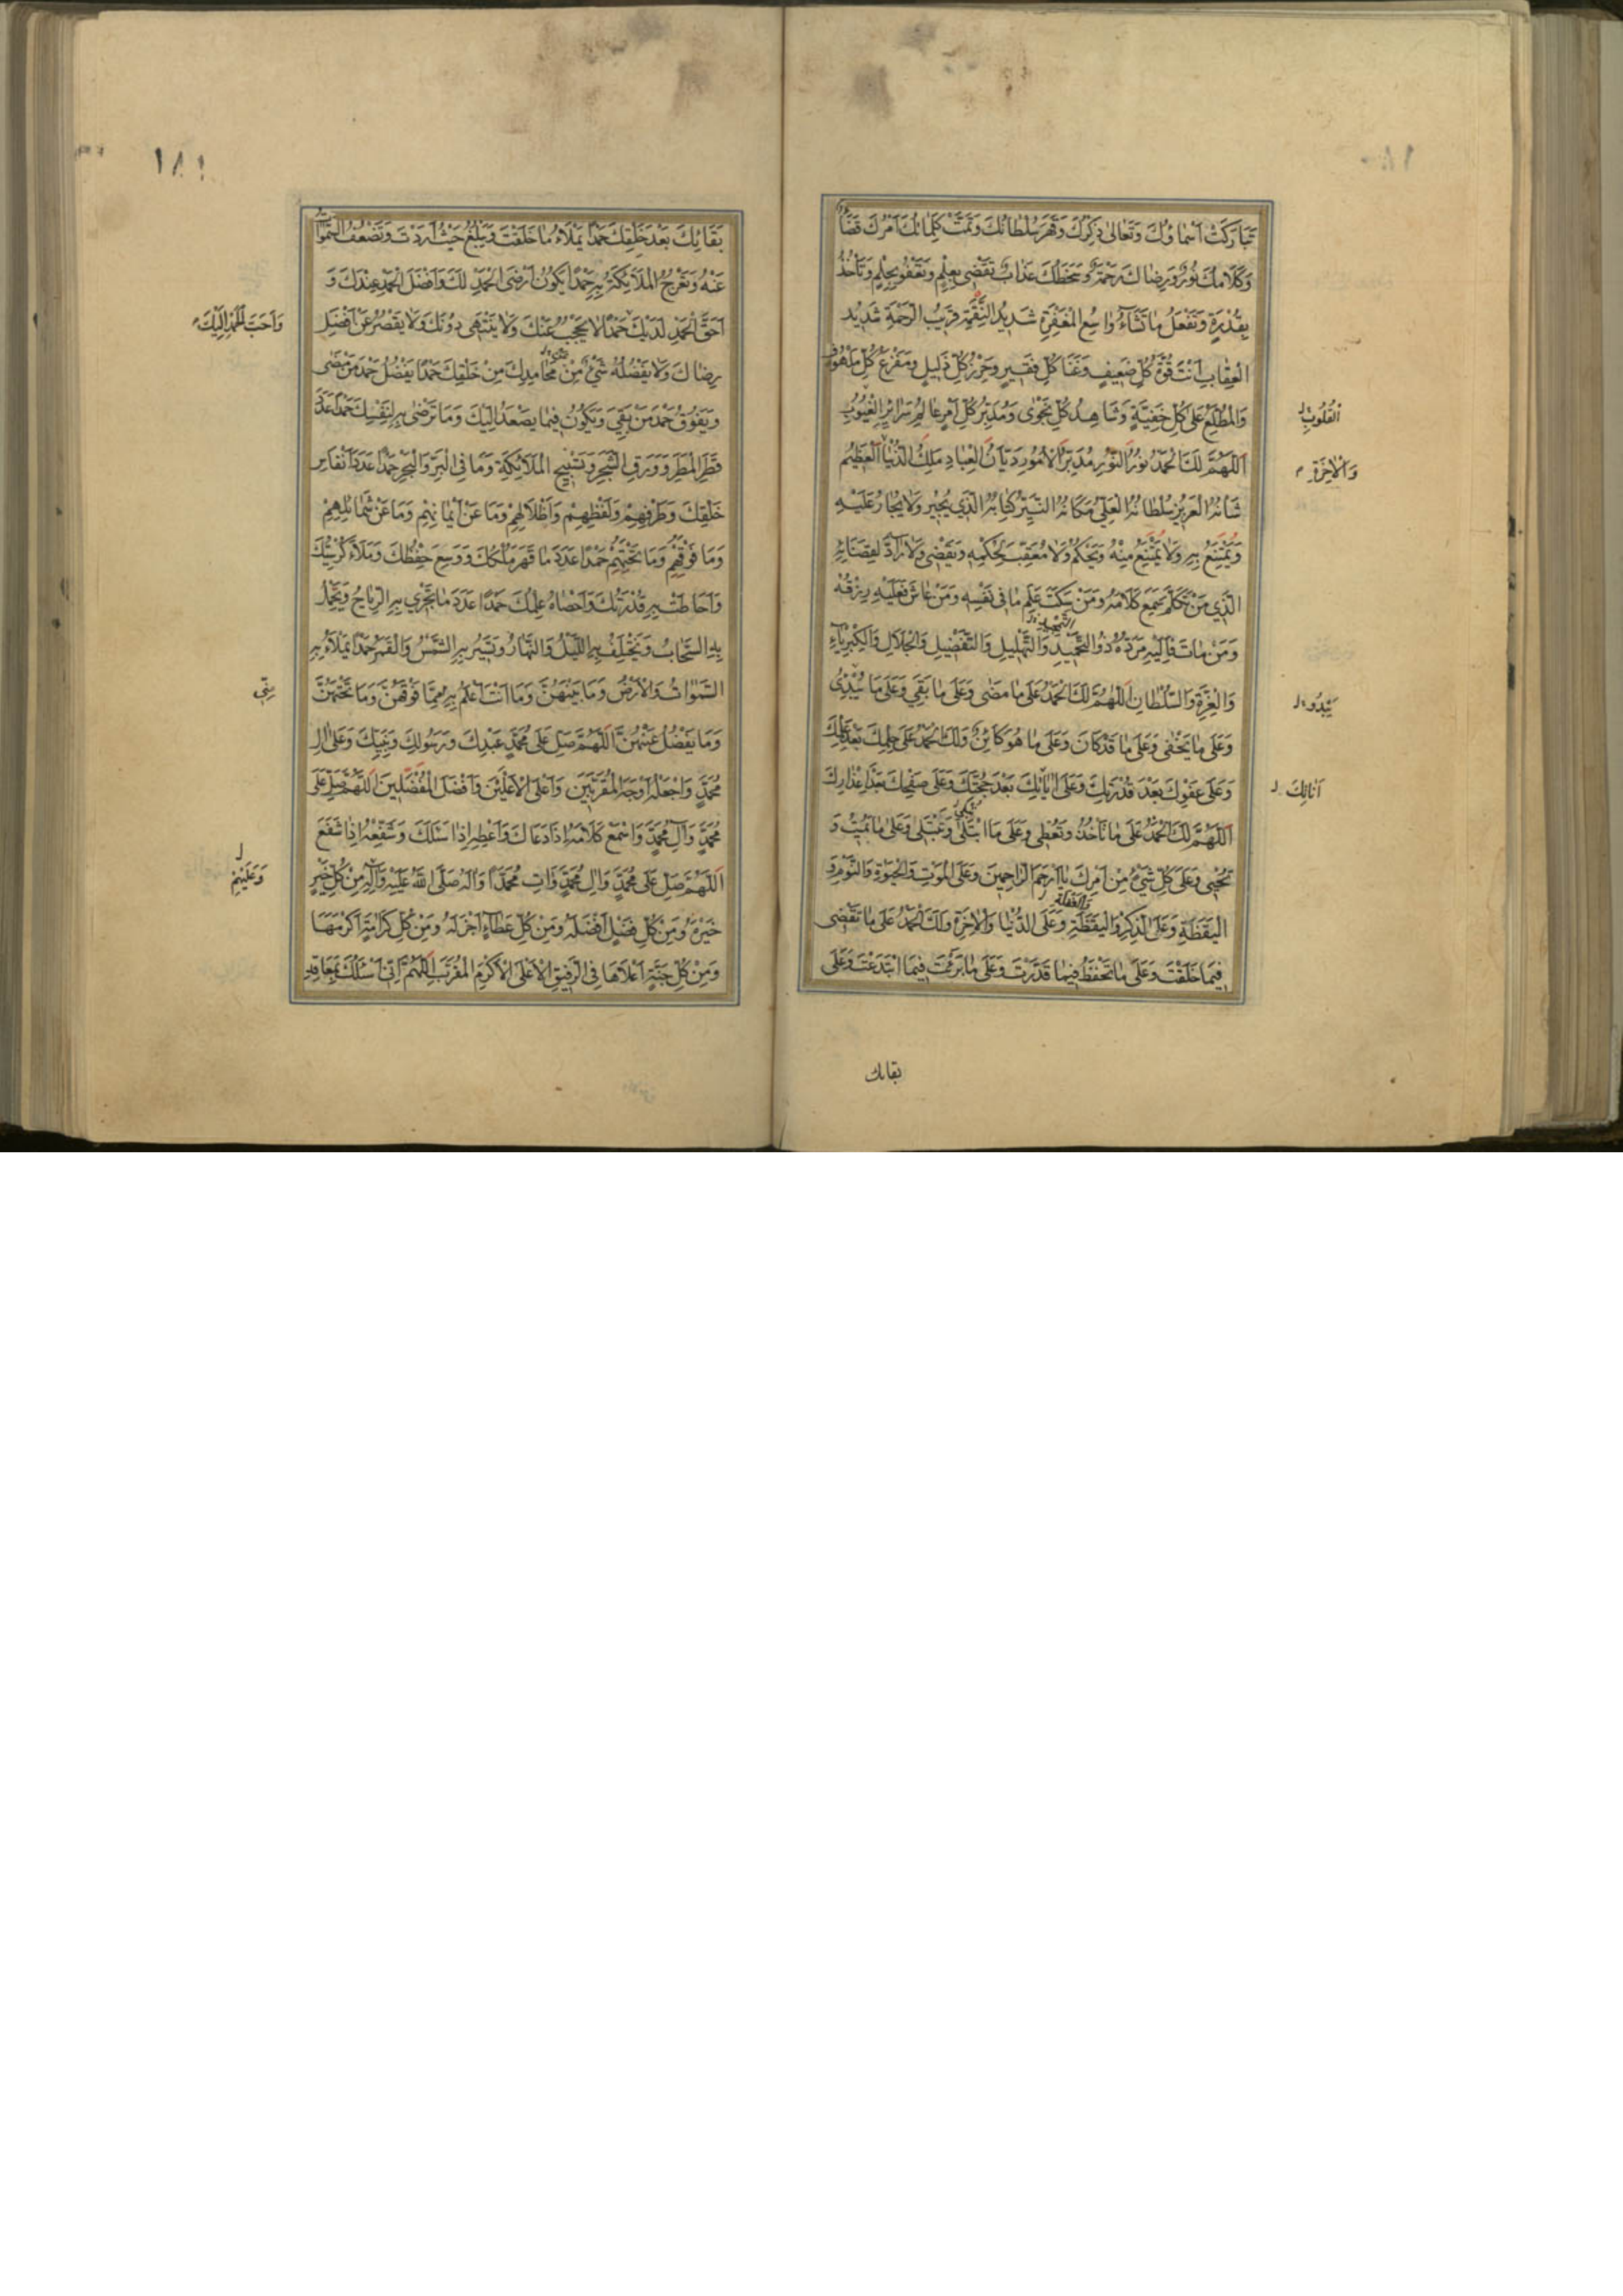 ١٨٠
تَبَارَكَتْ اَسْمَاؤُكَ وَتَعَالىٰ ذِكْرُكَ وَقَهَرَ سُلْطَانُكَ وَتَمَّتْ كَلِمَاتُكَ اَمْرُكَ قَضَاءٌ
وَكَلَامُكَ نُورٌ وَرِضَاكَ رَحْمَةٌ وَسَخَطُكَ عَذَابٌ تَقْضِى بِعِلْمٍ وَتَعْفُو بِحِلْمٍ وَتَأْخُذُ
بِقُدْرَةٍ وَتَفْعَلُ مَا تَشَاءُ وَاسِعُ الْمَغْفِرَةِ شَدِيدُ النَّقِمَةِ قَرِيبُ الرَّحْمَةِ شَدِيدُ
الْعِقَابِ اَنْتَ قُوَّةُ كُلِّ ضَعِيفٍ وَغَنَا كُلِّ فَقِيرٍ وَحِرْزُ كُلِّ ذَلِيلٍ وَمَفْزَعُ كُلِّ مَلْهُوفٍ
وَالْمُطَّلِعُ عَلَى كُلِّ خَفِيَّةٍ وَشَاهِدُ كُلِّ نَجْوٰى وَمُدَبِّرُ كُلِّ اَمْرٍ عَالِمُ سَرَائِرِ الْغُيُوبِ
اَلْقُلُوبِ ل
اَللّٰهُمَّ لَكَ الْحَمْدُ نُورَ النُّورِ مُدَبِّرَ الْاُمُورِ دَيَّانَ الْعِبَادِ مَلِكَ الدُّنْيَا الْعَظِيمُ
وَالْاٰخِرَةِ م
شَأْنُهُ الْعَزِيزُ سُلْطَانُهُ الْعَلِيُّ مَكَانُهُ النَّيِّرُ كِتَابُهُ الَّذِي يُجِيرُ وَلَا يُجَارُ عَلَيْهِ
وَيُمْتَنَعُ بِهِ وَلَا يُمْتَنَعُ مِنْهُ وَيَحْكُمُ وَلَا مُعَقِّبَ لِحُكْمِهِ وَيَقْضِى وَلَا رَادَّ لِقَضَائِهِ
الَّذِي مَنْ تَكَلَّمَ سَمِعَ كَلَامَهُ وَمَنْ سَكَتَ عَلِمَ مَا فِى نَفْسِهِ وَمَنْ عَاشَ فَعَلَيْهِ رِزْقُهُ
وَمَنْ مَاتَ فَاِلَيْهِ مَرَدُّهُ ذُو التَّحْمِيدِ وَالتَّهْلِيلِ وَالتَّفْضِيلِ وَالْجَلَالِ وَالْكِبْرِيَاءِ
وَالْعِزَّةِ وَالسُّلْطَانِ اَللّٰهُمَّ لَكَ الْحَمْدُ عَلَى مَا مَضٰى وَعَلَى مَا بَقِيَ وَعَلَى مَا تُبْدِئُ
يَبْدُو ل
وَعَلَى مَا يَخْفٰى وَعَلَى مَا قَدْ كَانَ وَعَلَى مَا هُوَ كَائِنٌ وَلَكَ الْحَمْدُ عَلَى حِلْمِكَ بَعْدَ عِلْمِكَ
وَعَلَى عَفْوِكَ بَعْدَ قُدْرَتِكَ وَعَلَى اٰيَاتِكَ بَعْدَ حُجَّتِكَ وَعَلَى صَفْحِكَ بَعْدَ اِعْذَارِكَ
اَنَاتِكَ ل
اَللّٰهُمَّ لَكَ الْحَمْدُ عَلَى مَا تَأْخُذُ وَتُعْطِى وَعَلَى مَا ابْتَلٰى وَتَبْتَلِى وَعَلَى مَا تُمِيتُ وَ
تُحْيِى وَعَلَى كُلِّ شَيْءٍ مِنْ اَمْرِكَ يَا اَرْحَمَ الرَّاحِمِينَ وَعَلَى الْمَوْتِ وَالْحَيٰوةِ وَالنَّوْمِ وَ
وَالْغَفْلَةِ
الْيَقَظَةِ وَعَلَى الذِّكْرِ وَالْيَقَظَةِ وَعَلَى الدُّنْيَا وَالْاٰخِرَةِ وَلَكَ الْحَمْدُ عَلَى مَا تَقْضِى
فِيمَا خَلَقْتَ وَعَلَى مَا تَحْفَظُ فِيمَا قَدَّرْتَ وَعَلَى مَا بَرَئْتَ فِيمَا ابْتَدَعْتَ وَعَلَى
بقائك
١٨١
بَقَائِكَ بَعْدَ خَلْقِكَ حَمْدًا يَمْلَاءُ مَا خَلَقْتَ وَيَبْلُغُ حَيْثُ اَرَدْتَ وَتَضْعُفُ السَّمٰوَاتُ
عَنْهُ وَتَعْرُجُ الْمَلَائِكَةُ بِهِ حَمْدًا يَكُونُ اَرْضَى الْحَمْدِ لَكَ وَاَفْضَلَ الْحَمْدِ عِنْدَكَ وَ
اَحَقَّ الْحَمْدِ لَدَيْكَ حَمْدًا لَا يُحْجَبُ عَنْكَ وَلَا يَنْتَهِى دُونَكَ وَلَا يَقْصُرُ عَنْ اَفْضَلِ
وَاَحَبَّ الْحَمْدِ اِلَيْكَ م
رِضَاكَ وَلَا يَفْضُلُهُ شَيْءٌ مِنْ مَحَامِدِكَ مِنْ خَلْقِكَ حَمْدًا يَفْضُلُ حَمْدَ مَنْ مَضٰى
وَيَفُوقُ حَمْدَ مَنْ بَقِيَ وَيَكُونُ فِيمَا يَصْعَدُ اِلَيْكَ وَمَا تَرْضٰى بِهِ لِنَفْسِكَ حَمْدًا عَدَدَ
قَطْرِ الْمَطَرِ وَوَرَقِ الشَّجَرِ وَتَسْبِيحِ الْمَلَائِكَةِ وَمَا فِى الْبَرِّ وَالْبَحْرِ حَمْدًا عَدَدَ اَنْفَاسِ
خَلْقِكَ وَطَرْفِهِمْ وَلَفْظِهِمْ وَاَظْلَالِهِمْ وَمَا عَنْ اَيْمَانِهِمْ وَمَا عَنْ شَمَائِلِهِمْ
وَمَا فَوْقَهُمْ وَمَا تَحْتَهُمْ حَمْدًا عَدَدَ مَا قَهَرَ مُلْكُكَ وَوَسِعَ حِفْظُكَ وَمَلَاءَ كُرْسِيُّكَ
وَاَحَاطَتْ بِهِ قُدْرَتُكَ وَاَحْصَاهُ عِلْمُكَ حَمْدًا عَدَدَ مَا تَجْرِي بِهِ الرِّيَاحُ وَيَحْمِلُ
بِهِ السَّحَابُ وَيَخْتَلِفُ بِهِ اللَّيْلُ وَالنَّهَارُ وَتَسِيرُ بِهِ الشَّمْسُ وَالْقَمَرُ حَمْدًا يَمْلَاءُ بِهِ
السَّمٰوَاتُ وَالْاَرْضُ وَمَا بَيْنَهُنَّ وَمَا اَنْتَ اَعْلَمُ بِهِ مِمَّا فَوْقَهُنَّ وَمَا تَحْتَهُنَّ
مِنّى
وَمَا يَفْضُلُ عَنْهُنَّ اَللّٰهُمَّ صَلِّ عَلَى مُحَمَّدٍ عَبْدِكَ وَرَسُولِكَ وَنَبِيِّكَ وَعَلٰى اٰلِ
مُحَمَّدٍ وَاجْعَلْهُ اَوْجَهَ الْمُقَرَّبِينَ وَاَعْلَى الْاَعْلَيْنَ وَاَفْضَلَ الْمُفَضَّلِينَ اَللّٰهُمَّ صَلِّ عَلَى
مُحَمَّدٍ وَاٰلِ مُحَمَّدٍ وَاسْمَعْ كَلَامَهُ اِذَا دَعَاكَ وَاَعْطِهِ اِذَا سَئَلَكَ وَشَفِّعْهُ اِذَا شَفَعَ
اَللّٰهُمَّ صَلِّ عَلَى مُحَمَّدٍ وَاٰلِ مُحَمَّدٍ وَاٰتِ مُحَمَّدًا وَاٰلَهُ صَلَّى اللّٰهُ عَلَيْهِ وَاٰلِهِ مِنْ كُلِّ خَيْرٍ
وَعَلَيْهِمْ ل
خَيْرَهُ وَمِنْ كُلِّ فَضْلٍ اَفْضَلَهُ وَمِنْ كُلِّ عَطَاءٍ اَجْزَلَهُ وَمِنْ كُلِّ كَرَامَةٍ اَكْرَمَهَا
وَمِنْ كُلِّ جَنَّةٍ اَعْلَاهَا فِى الرَّفِيقِ الْاَعْلَى الْاَكْرَمِ الْمُقَرَّبِ اَللّٰهُمَّ اِنِّى اَسْئَلُكَ بِمَعَاقِدِ